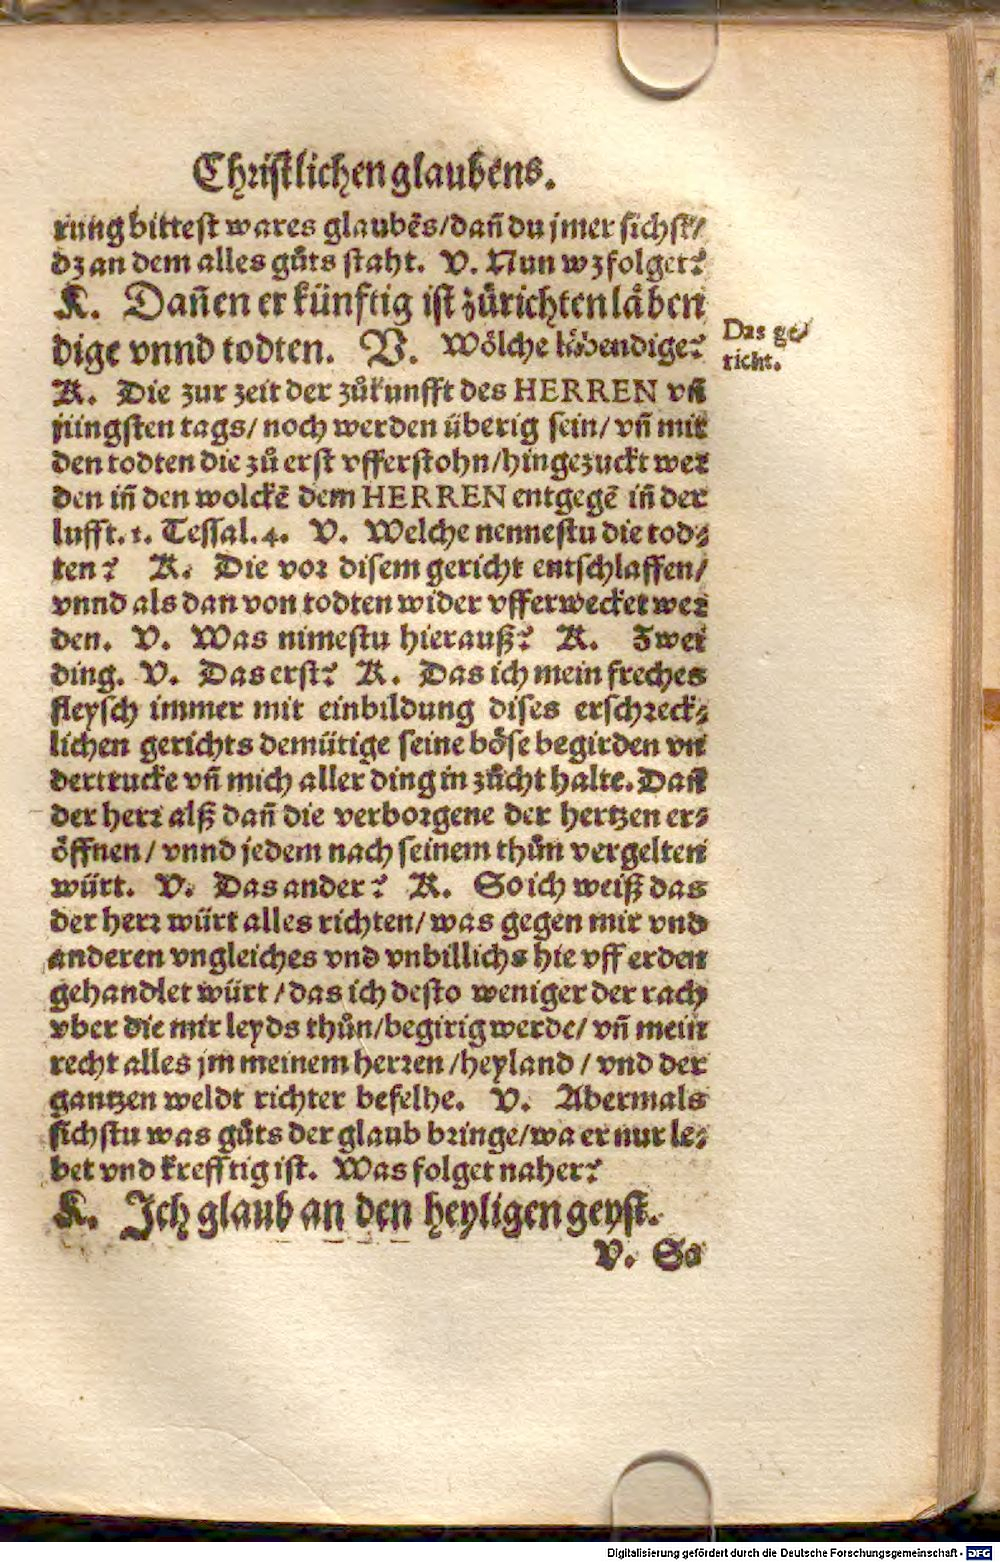 Christlichen glaubens.
rung bittest wares glaubēs/dañ du jmer sichst/
dz an dem alles gůts staht. V. Nun wz folget?
K. Dañen er künftig ist zů richten läben
dige vnnd todten. V. Wölche läbendige?
K. Die zur zeit der zůkunfft des HERREN vñ
jüngsten tags/ noch werden überig sein/ vñ mit
den todten die zů erst vfferstohn/hingezuckt wer
den iñ den wolckē dem HERREN entgegē iñ der
lufft. 1. Tessal. 4. V. Welche nennestu die tod⸗
ten? K. Die vor disem gericht entschlaffen/
vnnd als dan von todten wider vfferwecket wer
den. V. Was nimestu hierauß? K. Zwei
ding. V. Das erst? K. Das ich mein freches
fleysch immer mit einbildung dises erschreck⸗
lichen gerichts demütige seine böse begirden vn
dertrucke vñ mich aller ding in zůcht halte. Dañ
der herr alß dañ die verborgene der hertzen er⸗
öffnen/ vnnd jedem nach seinem thůn vergelten
würt. V. Das ander? K. So ich weiß das
der herr würt alles richten/ was gegen mir vnd
anderen vngleiches vnd vnbillichs hie vff erden
gehandlet würt/das ich desto weniger der rach
vber die mir leyds thůn/begirig werde/ vñ mein
recht alles jm meinem herren/heyland/ vnd der
gantzen weldt richter befelhe. V. Abermals
sichstu was gůts der glaub bringe/wa er nur le⸗
bet vnd krefftig ist. Was folget naher?
K. Ich glaub an den heyligen geyst.
V. So
Das ge/
richt.
Digitalisierung gefördert durch die Deutsche Forschungsgemeinschaft - DFG